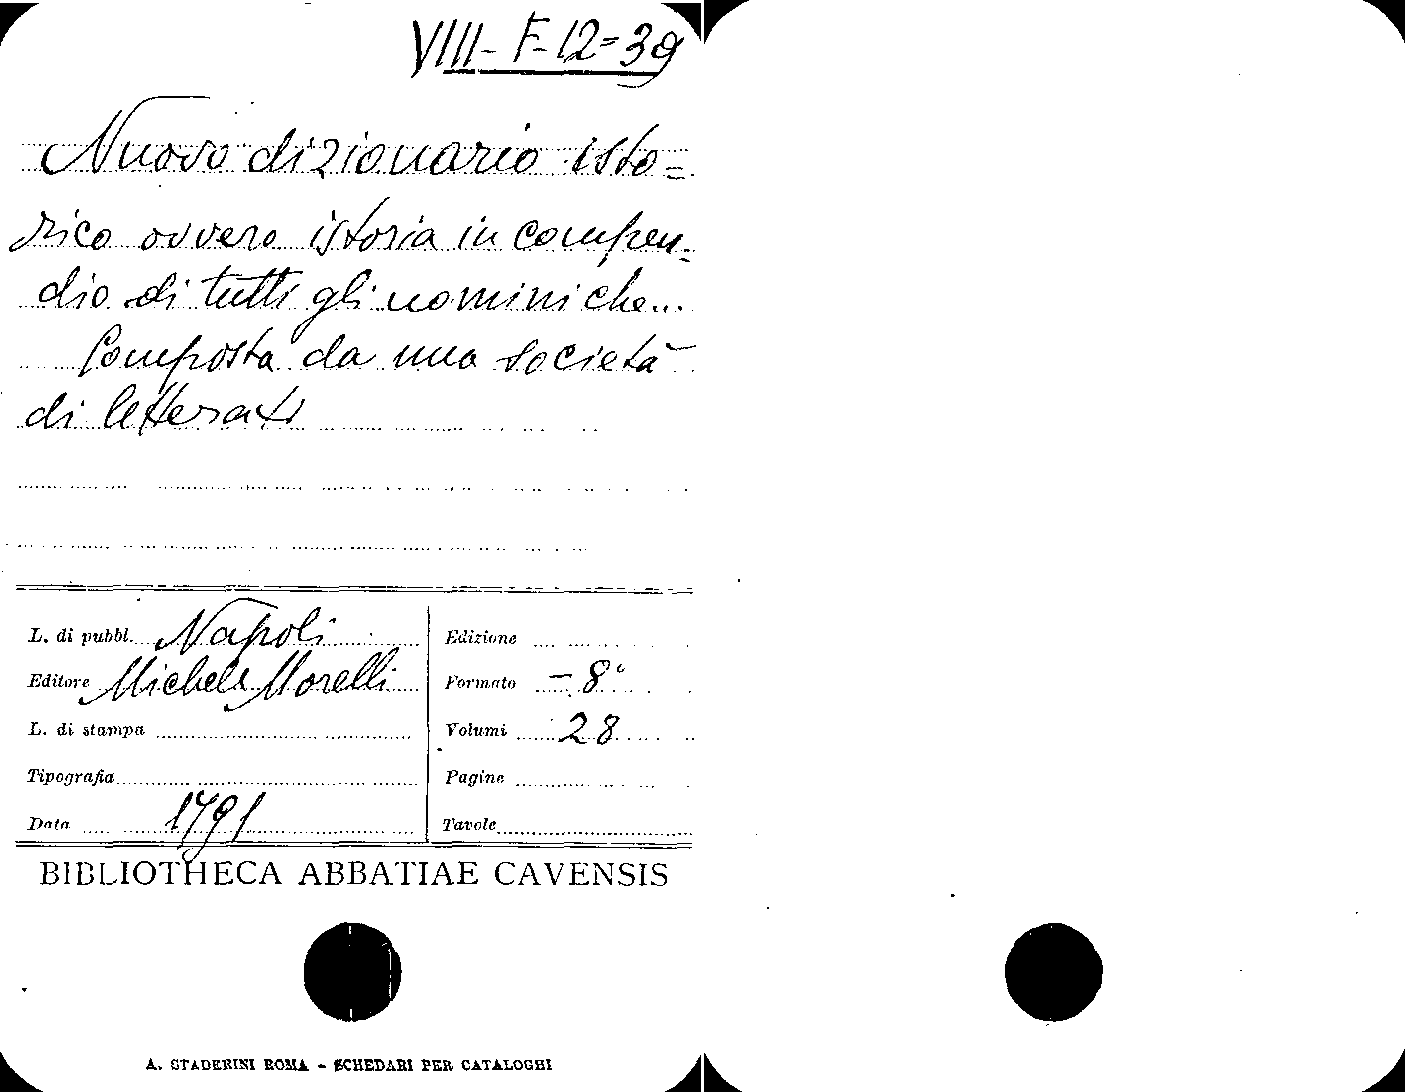 VIII-F-12=39
Nuovo dizionario isto=
rico ovvero istoria in compen=
dio di tutti gli uomini che...
Composta da una società
di letterati
L. di pubbl. Napoli
Editore Michele Morelli
L. di stampa
Tipografia
Data 1791
Edizione
Formato - 8°
Volumi 28
Pagine
Tavole
BIBLIOTHECA ABBATIAE CAVENSIS
A. STADERINI ROMA - SCHEDARI PER CATALOGHI